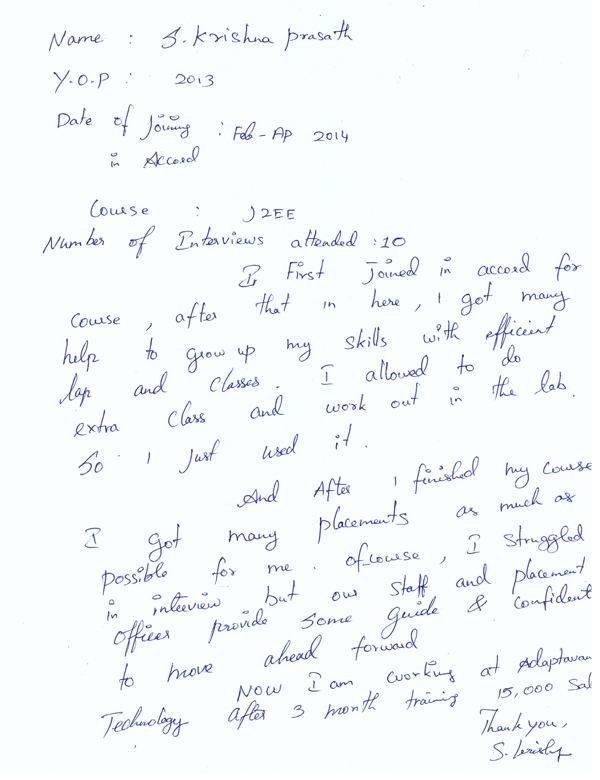 Name : S. Krishna prasath
Y.O.P : 2013
Date of Joining : Feb - AP 2014
in Accord
Course : J2EE
Number of Interviews attended : 10
I First Joined in accord for
course, after that in here, I got many
help to grow up my skills with efficient
lap and classes. I allowed to do
extra class and work out in the lab.
So I Just used it.
And After I finished my course
I got many placements as much as
possible for me. of course, I Struggled
in interview but our Staff and placement
officer provide some guide & confident
to move ahead forward
Now I am working at Adaptavan
Technology after 3 month training 15,000 Sal
Thank you,